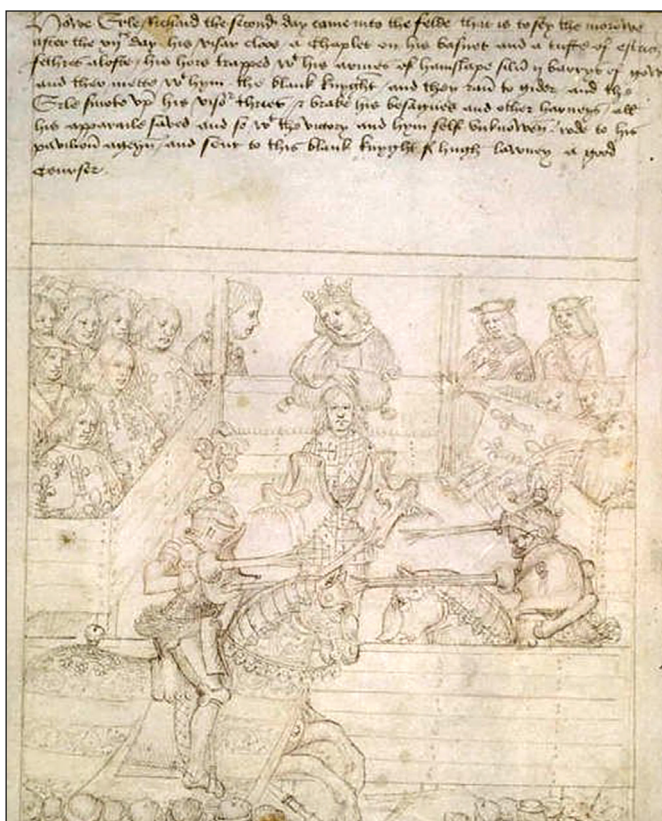 Howe Erle Richard the second day came into the felde that is to sey the morowe
after the vijth day his visar cloos a Chaplet on his basnet and a tuffe of estrich
fethres alofte his hors trapped wt his armes of hanslape silver ij barres of gow
and ther mette wt hym the blank knyght and they ran to gider and the
Erle smote vp his visor thries & brake his besagues and other harneys all
his apparaile saved and so wt the victory and hym self vnknowen rode to his
pavilion ageyn and sent to this blank knyght Sr hugh lawney a good
Courser